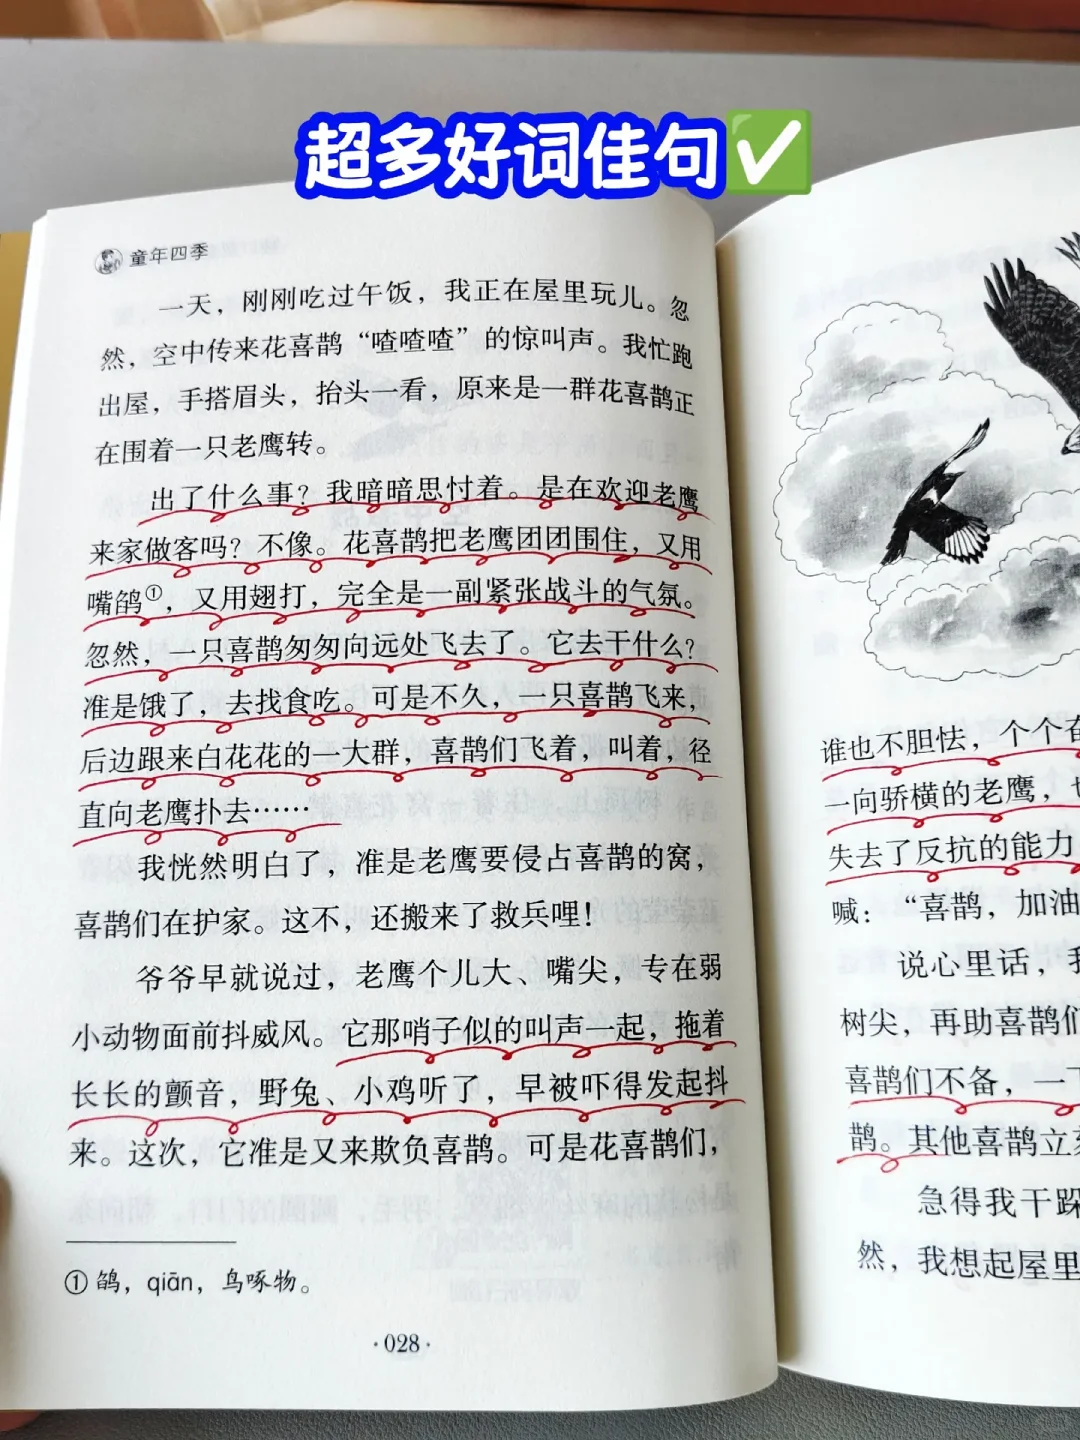 超多好词佳句✅
童年四季
一天，刚刚吃过午饭，我正在屋里玩儿。忽
然，空中传来花喜鹊“喳喳喳”的惊叫声。我忙跑
出屋，手搭眉头，抬头一看，原来是一群花喜鹊正
在围着一只老鹰转。
出了什么事？我暗暗思忖着。是在欢迎老鹰
来家做客吗？不像。花喜鹊把老鹰团团围住，又用
嘴鹐①，又用翅打，完全是一副紧张战斗的气氛。
忽然，一只喜鹊匆匆向远处飞去了。它去干什么？
准是饿了，去找食吃。可是不久，一只喜鹊飞来，
后边跟来白花花的一大群，喜鹊们飞着，叫着，径
直向老鹰扑去……
我恍然明白了，准是老鹰要侵占喜鹊的窝，
喜鹊们在护家。这不，还搬来了救兵哩！
爷爷早就说过，老鹰个儿大、嘴尖，专在弱
小动物面前抖威风。它那哨子似的叫声一起，拖着
长长的颤音，野兔、小鸡听了，早被吓得发起抖
来。这次，它准是又来欺负喜鹊。可是花喜鹊们，
① 鹐，qiān，鸟啄物。
·028·
谁也不胆怯，个个奋
一向骄横的老鹰，
失去了反抗的能力
喊：“喜鹊，加油
说心里话，
树尖，再助喜鹊们
喜鹊们不备，一
鹊。其他喜鹊立刻
急得我干跺
然，我想起屋里